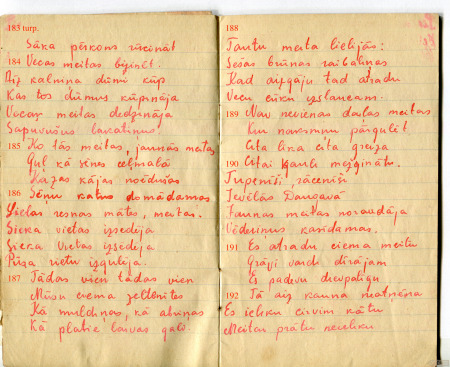 183 turp.
Sāka pērkons rūcināt
184 Vecas meitas
Aiz kalniņa dūmi kūp
Kas tos dūmus kūpināja
Vecas meitas dedzināja
Sapuvušus lakatiņus
185 Ko tās meitas, jaunās meitas
Guļ kā sēnes ceļmalā
Kazas kājas
186 Sēņu
Lielas resnas mātes meitas.
Siena vietas izsēdēja
Siena vietas izsēdēja
Pūra vietu izgulēja.
187 Tādas vien tādas vien
Mūsu ciema zeltenītes
Kā muldiņas, kā abriņas
Kā platie
188
Tautu meita lielījās:
Sešas brūnas raibaļiņas
Kad aizgāju tad atradu
Vecu cūku izslaucam.
189 Nav nevienas daiļas meitas
Kur
Cita lika cita greiza
190 Citai
Tupenīši, rācenīši
Ievēlās Daugavā
Jaunas meitas noraudāja
Vēderiņus kasīdamas.
191 Es atradu ciema meitu
Grāvī vardi dīrājam
Es padevu dievpalīgu
192 Tā aiz kauna
Es ieliku cirvim kātu
Meitai prātu neieliku